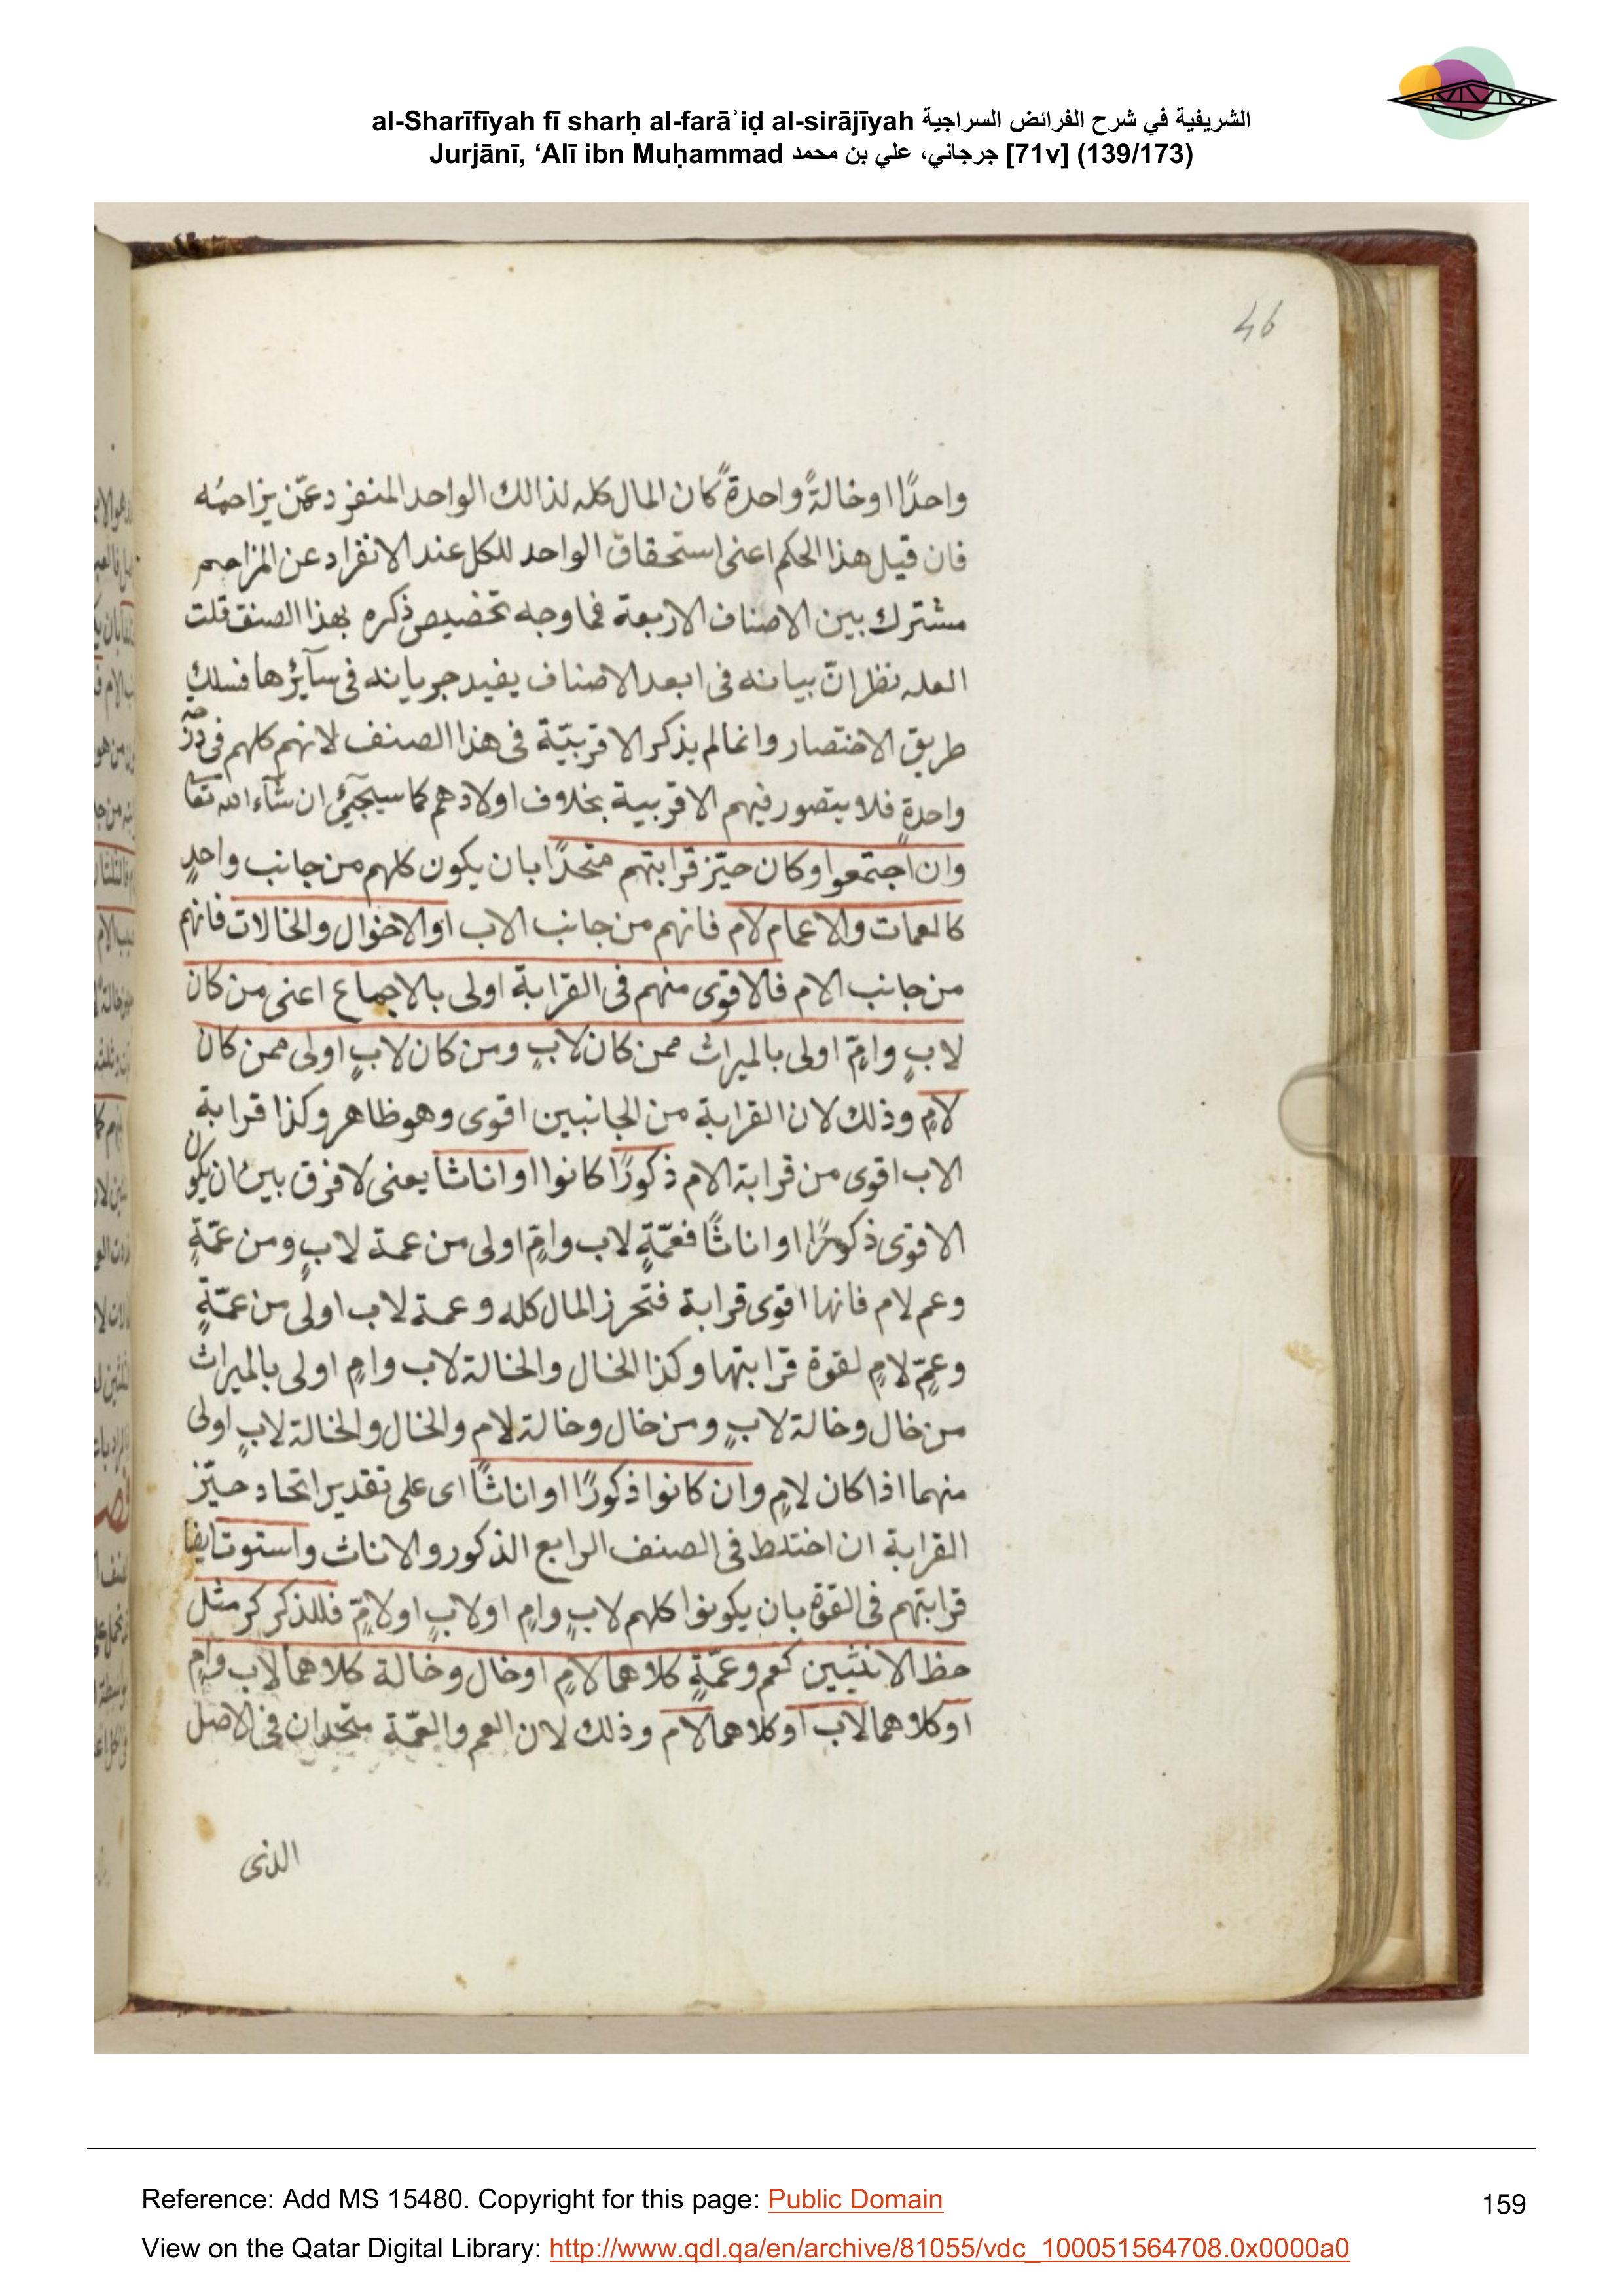 al-Sharīfīyah fī sharḥ al-farāʾiḍ al-sirājīyah الشريفية في شرح الفرائض السراجية
Jurjānī, ‘Alī ibn Muḥammad جرجاني، علي بن محمد [71v] (139/173)
46
واحدًا او خالةً واحدةً كان المال كله لذالك الواحد المنفرد عمّن يزاحمُه
فان قيل هذا الحكم اعنى استحقاق الواحد للكل عند الانفراد عن المزاحم
مشترك بين الاصناف الاربعة فما وجه تخصيص ذكره بهذا الصنف قلت
العله نظر انّ بيانه فى ابعد الاصناف يفيد جريانه فى سآئرها فسلك
طريق الاختصار وانما لم يذكر الاقربيّة فى هذا الصنف لانهم كلهم فى درجة
واحدةٍ فلا يتصور فيهم الاقربية بخلاف اولادهم كما سيجيٓئ ان شآء الله تعا
وان اجتمعوا وكان حيّز قرابتهم متحدًا بان يكون كلهم من جانب واحدٍ
كالعمات والاعمام لام فانهم من جانب الاب او الاخوال والخالات فانهم
من جانب الام فالاقوى منهم فى القرابة اولى بالاجماع اعنى من كان
لابٍ وامٍّ اولى بالميراث ممن كان لابٍ ومن كان لابٍ اولى ممن كان
لامٍ وذلك لان القرابة من الجانبين اقوى وهو ظاهر وكذا قرابة
الاب اقوى من قرابة الام ذكورًا كانوا او اناثا يعنى لا فرق بين ان يكون
الاقوى ذكورًا او اناثًا فعمّةٍ لاب وامٍ اولى من عمة لابٍ ومن عمّةٍ
وعم لام فانها اقوى قرابة فتحرز المال كله وعمة لاب اولى من عمّةٍ
وعمٍّ لامٍ لقوة قرابتها وكذا الخال والخالة لاب وامٍ اولى بالميراث
من خال وخالة لابٍ ومن خال وخالة لام والخال والخالة لابٍ اولى
منهما اذا كان لامٍ وان كانوا ذكورًا او اناثًا اى على تقدير اتحاد حيّز
القرابة ان اختلط فى الصنف الرابع الذكور والاناث واستوت ايضا
قرابتهم فى القوة بان يكونوا كلهم لابٍ وامٍ او لابٍ او لامٍّ فللذكر كر مثل
حظ الانثيين كعم وعمّةٍ كلاهما لامٍ او خال وخالة كلاهما لاب وامٍ
او كلاهما لاب او كلاهما لام وذلك لان العم والعمّة متحدان فى الاصل
الذى
Reference: Add MS 15480. Copyright for this page: Public Domain
159
View on the Qatar Digital Library: http://www.qdl.qa/en/archive/81055/vdc_100051564708.0x0000a0